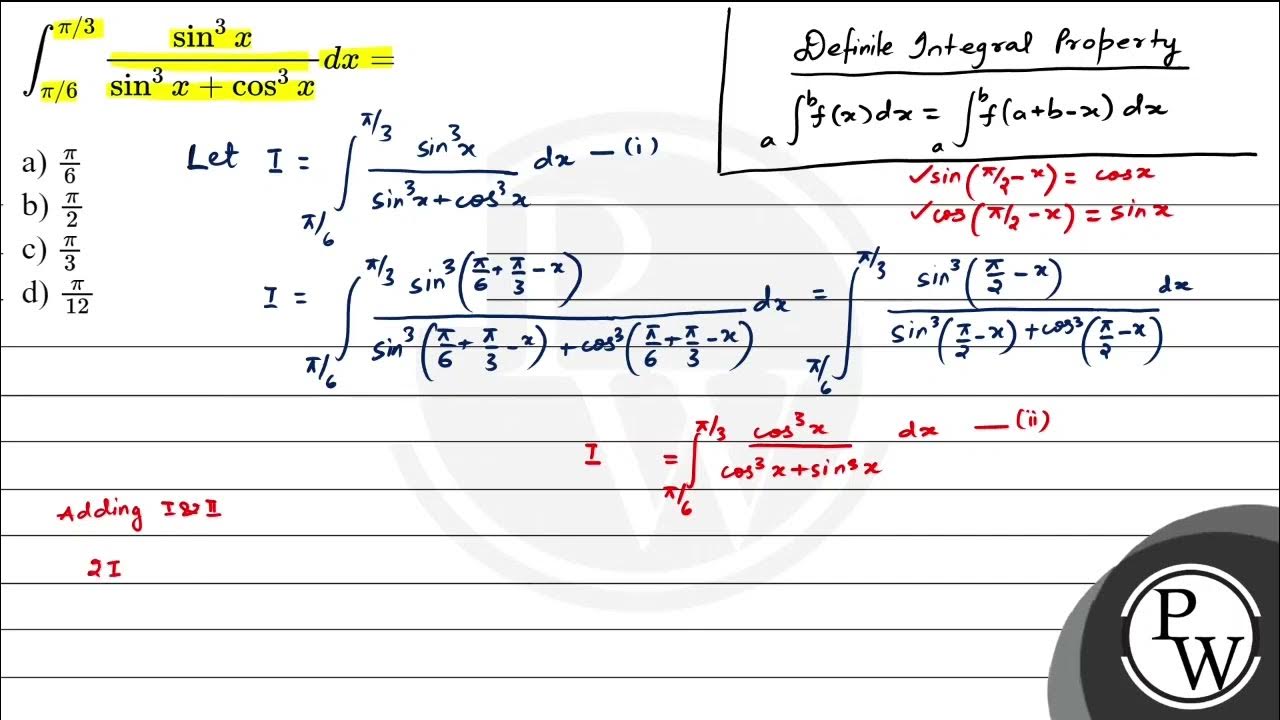 ∫_{π/6}^{π/3} sin³ x / (sin³ x + cos³ x) dx =
a) π/6
b) π/2
c) π/3
d) π/12
Definile Integral Property
a∫^b f(x)dx = a∫^b f(a+b-x) dx
✓sin(π/2 - x) = cosx
✓cos(π/2 - x) = sinx
Let I = ∫_{π/6}^{π/3} sin³x / (sin³x + cos³x) dx — (i)
I = ∫_{π/6}^{π/3} sin³(π/6 + π/3 - x) / (sin³(π/6 + π/3 - x) + cos³(π/6 + π/3 - x)) dx = ∫_{π/6}^{π/3} sin³(π/2 - x) / (sin³(π/2 - x) + cos³(π/2 - x)) dx
I = ∫_{π/6}^{π/3} cos³x / (cos³x + sin³x) dx — (ii)
Adding I & II
2I
PW
P
W